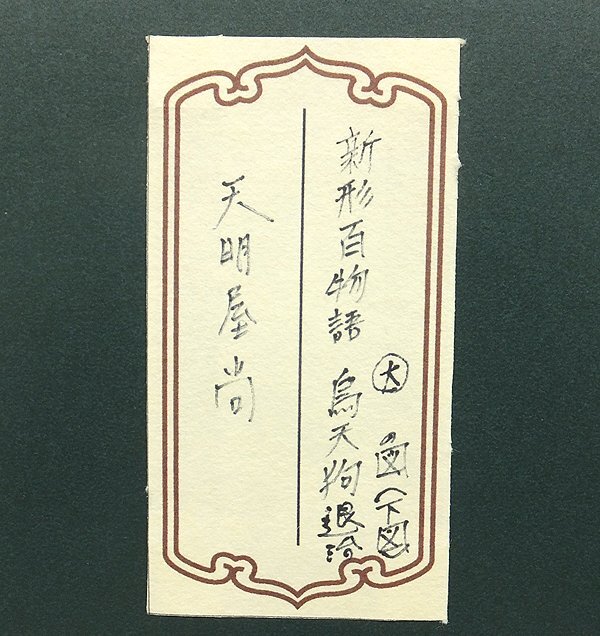 新形百物語 烏天狗退治
大 の図(下図)
天明屋尚